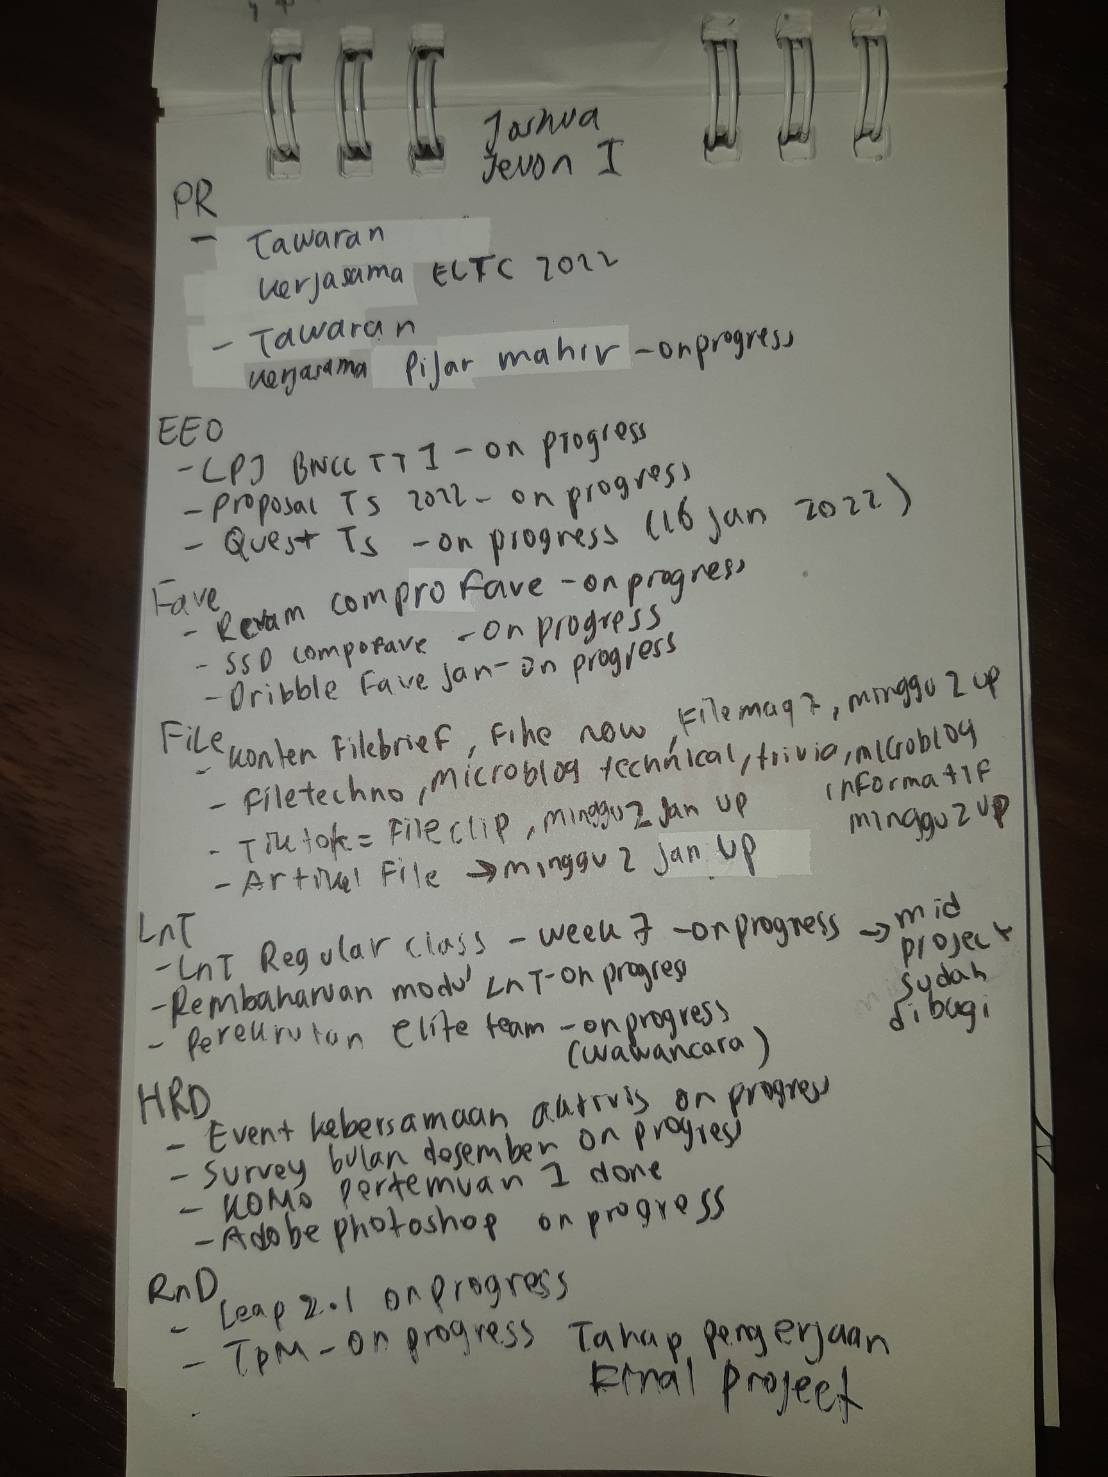 Joshua
Jevon I
PR
- Tawaran
kerjasama ECTC 2022
- Tawaran
kerjasama Pijar mahir - on progress
EEO
- LPJ BNCC TT 1 - on progress
- Proposal TS 2022 - on progress
- Quest Ts - on progress (16 Jan 2022)
Fave
- Revam compro Fave - on progress
- SSD compofave - on progress
- Dribble Fave Jan - on progress
File
- konten Filebrief, Fihe now, Filemag 7, minggu 2 up
- Filetechno, microblog technical, trivia, microblog
informatif
minggu 2 up
- Tiktok = File clip, minggu 2 Jan up
- Artikel File → minggu 2 Jan up
LnT
- LnT Regular class - week 7 - on progress → mid
project
sudah
dibagi
- Pembaharuan modul LnT - on progres
- Perekrutan elite team - on progress
(wawancara)
HRD
- Event kebersamaan aktivis on progres
- Survey bulan desember on progress
- KOMO pertemuan 1 done
- Adobe photoshop on progress
RnD
- Leap 2.1 on progress
- TPM - on progress Tahap pengerjaan
Final project